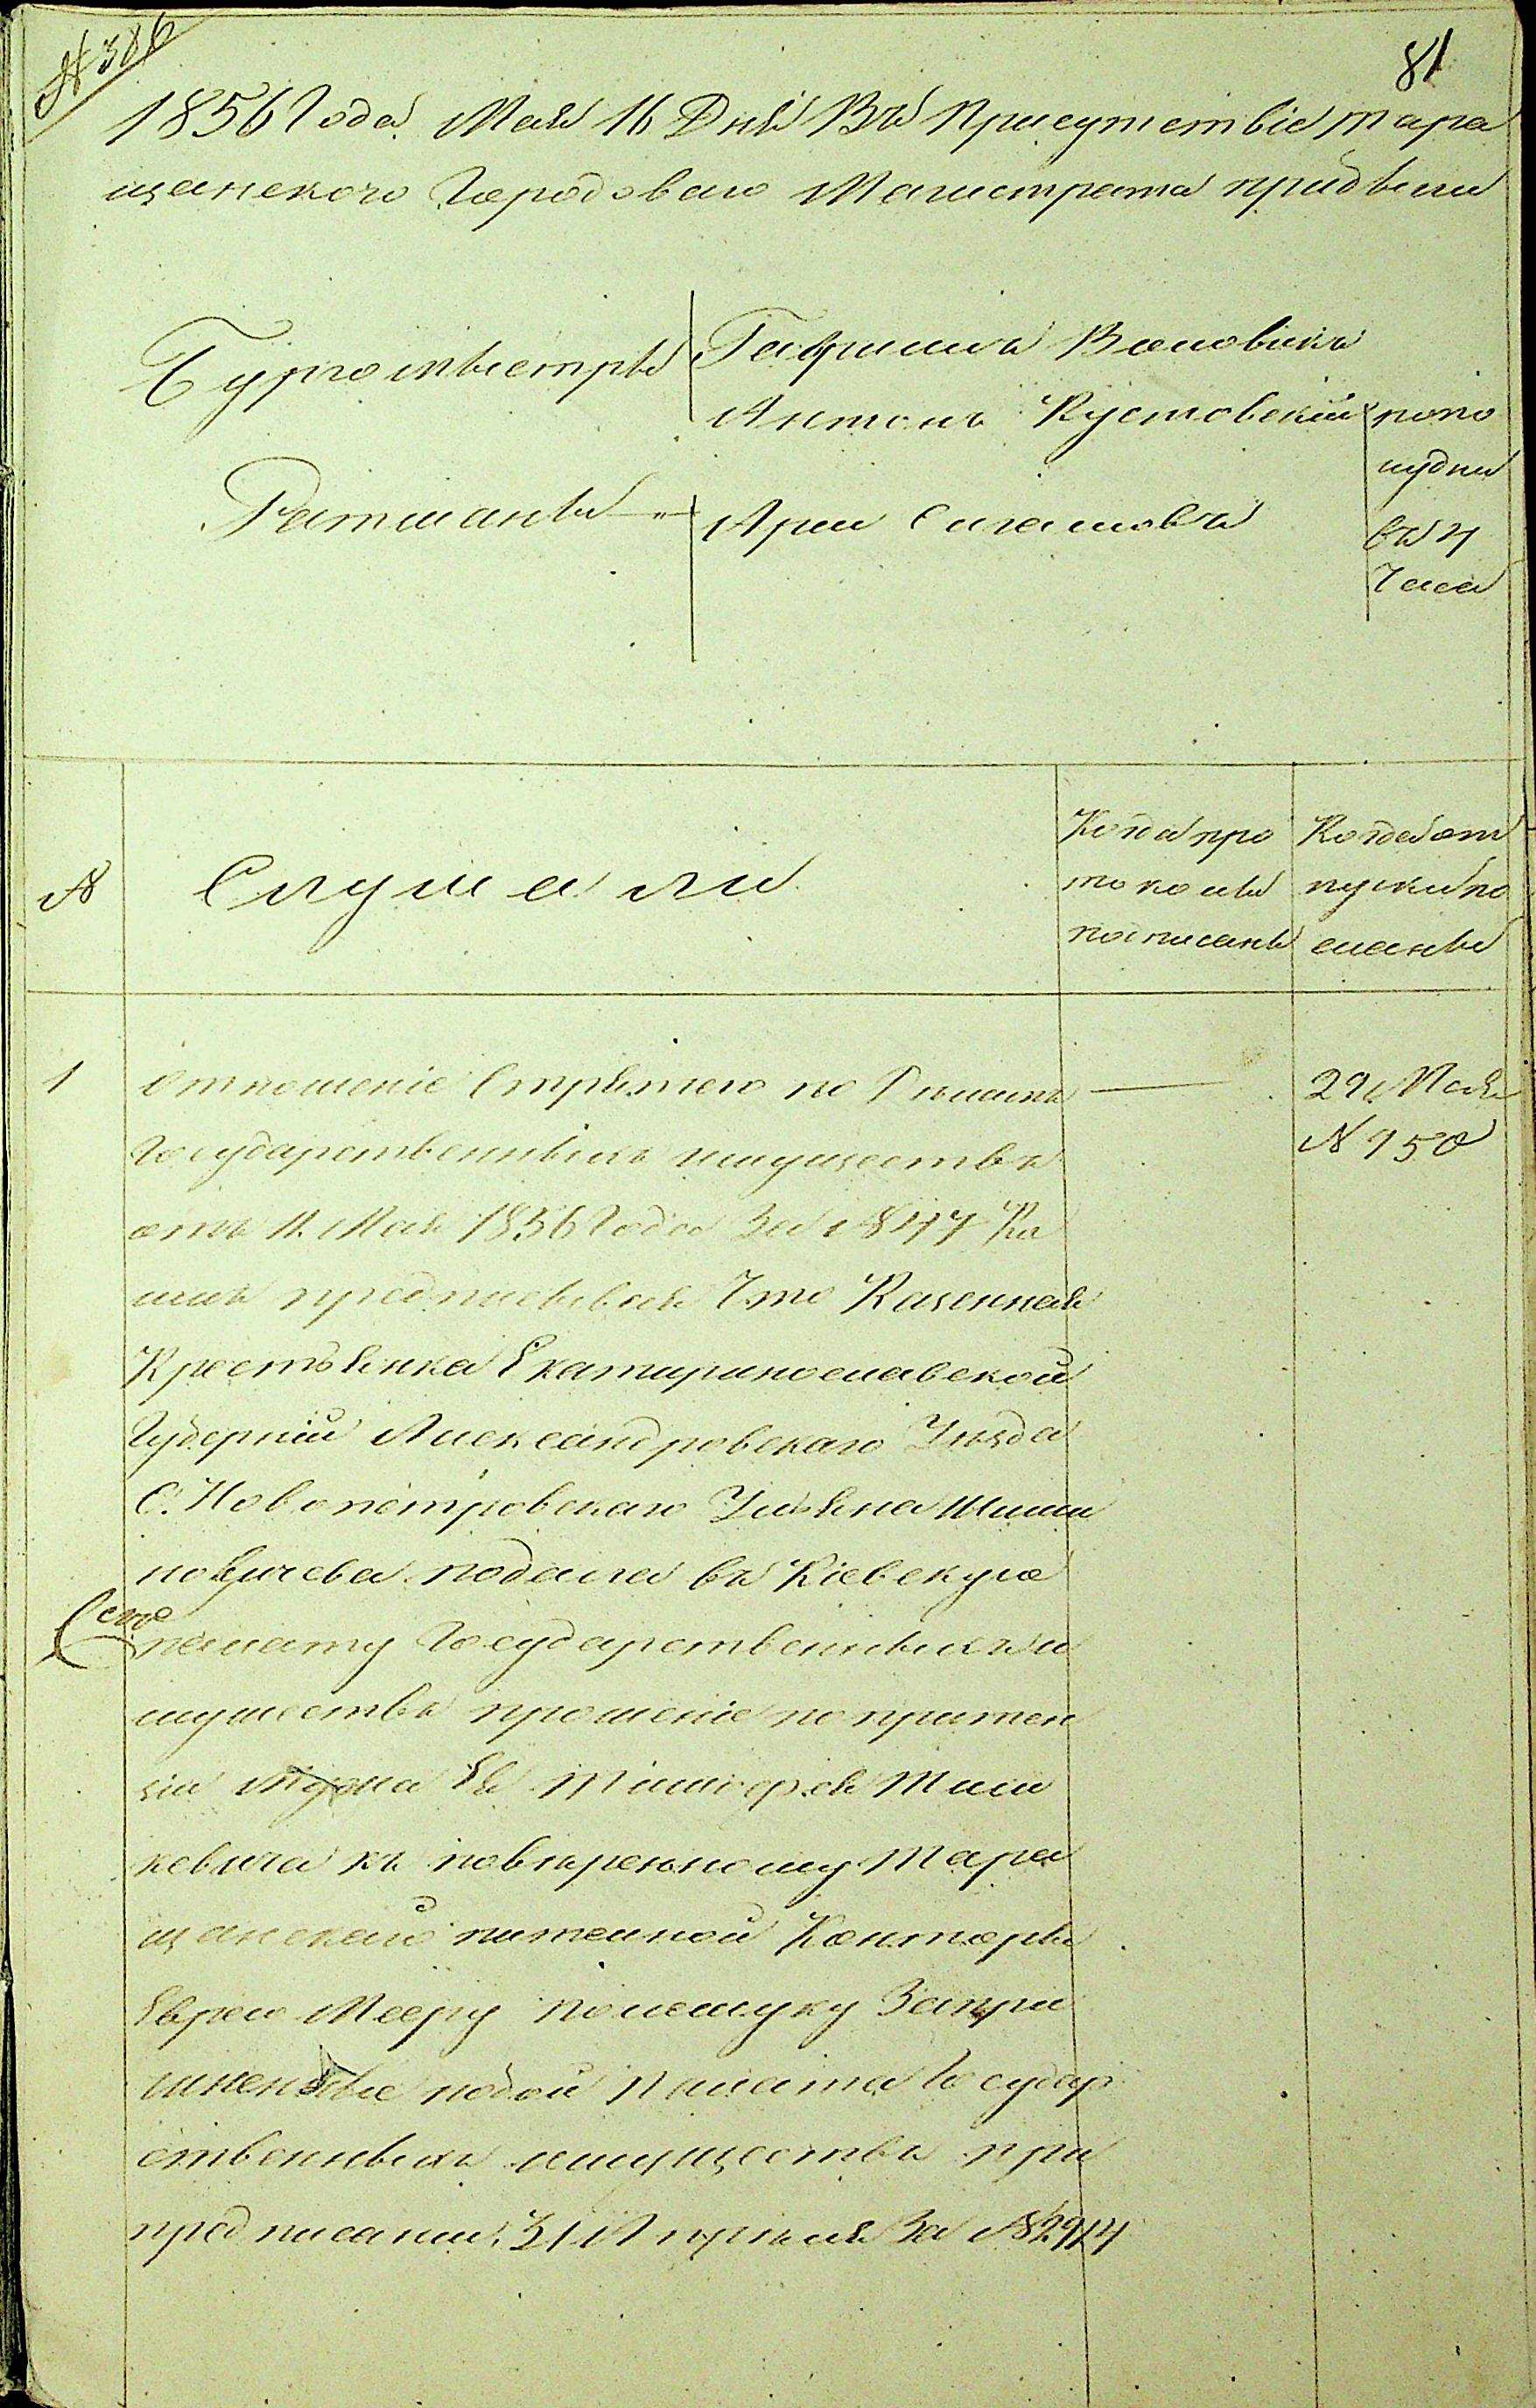 № 386
81
1856 Года Мая 16 Дня Въ Присутствіе Тара
щанского Городоваго Магистрата прибыли
Бургомистръ
Гаврилъ Вановикъ
Антонъ Кустовскій
Ратманы
Арій Сигаловъ
попо
лудни
въ 4
Часа
№
Слушали
Когда про
токолъ
подписанъ
Когда от
пуски по
сланы
1
Отношеніе Стряпчего по Дѣламъ
Государственныхъ имуществъ
отъ 11 Мая 1856 Года За № 47
предписывая Что Казенная
Крестьянка Екатиринославской
Губерніи Александровскаго Уѣзда
С. Новопетровскаго Ульяна
подала въ Кіевскую
полату Государственныхъ и
муществъ прошеніе по притен
зіи мужа Ея Тимофея Тим
кевича къ повѣренному Тара
щанской питейной Конторы
Еврею Мееру Полещуку За при
побои Палата Государ
ственныхъ имуществъ при
предписаніи 31 Апрѣля За № 2974
29 Мая
№ 950